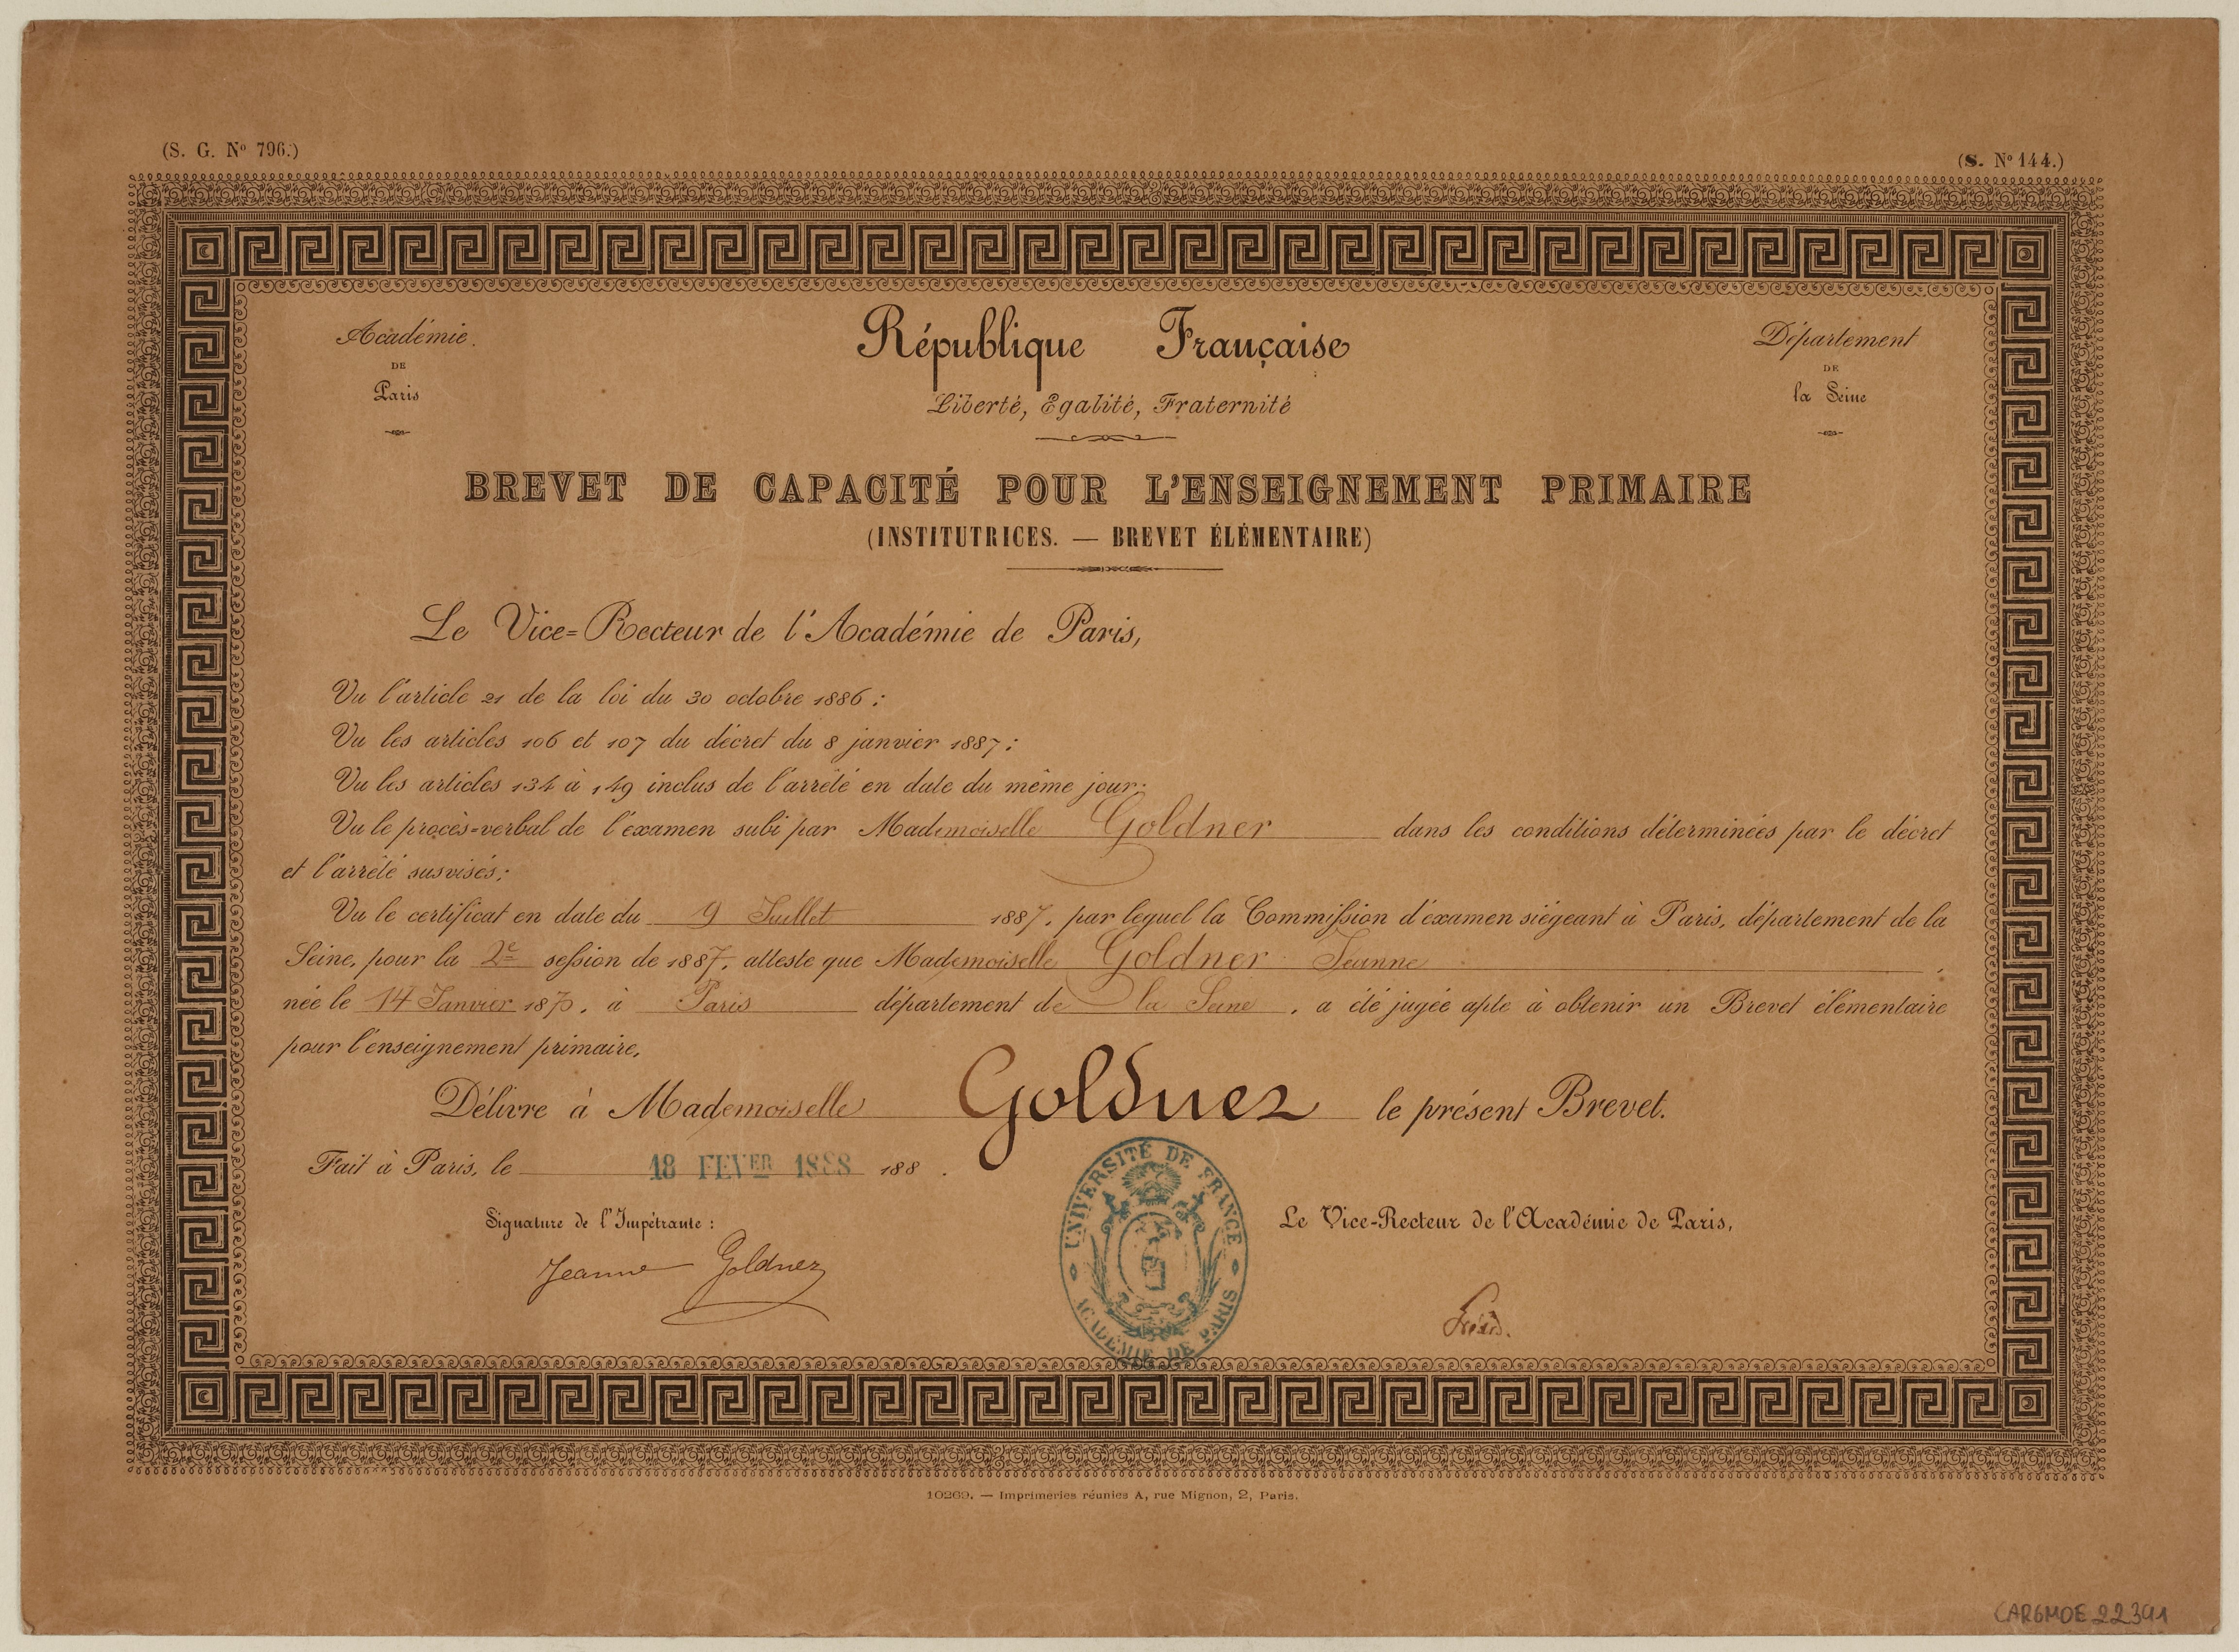 (S. G. Nº 796.)
(S. Nº 144.)
Académie
DE
Paris
République Française
Liberté, Egalité, Fraternité
Département
DE
la Seine
BREVET DE CAPACITÉ POUR L'ENSEIGNEMENT PRIMAIRE
(INSTITUTRICES. — BREVET ÉLÉMENTAIRE)
Le Vice-Recteur de l'Académie de Paris,
Vu l'article 21 de la loi du 30 octobre 1886 ;
Vu les articles 106 et 107 du décret du 8 janvier 1887 ;
Vu les articles 134 à 149 inclus de l'arrêté en date du même jour;
Vu le procès-verbal de l'examen subi par Mademoiselle Goldner dans les conditions déterminées par le décret
et l'arrêté susvisés;
Vu le certificat en date du 9 Juillet 1887, par lequel la Commission d'examen siégeant à Paris, département de la
Seine, pour la 2e session de 1887, atteste que Mademoiselle Goldner Jeanne,
née le 14 Janvier 1870, à Paris département de la Seine, a été jugée apte à obtenir un Brevet élémentaire
pour l'enseignement primaire,
Délivre à Mademoiselle Goldner le présent Brevet.
Fait à Paris, le 18 FEVER 1888 188 .
Signature de l'Impétrante :
Le Vice-Recteur de l'Académie de Paris,
Jeanne Goldner
UNIVERSITÉ DE FRANCE
ACADÉMIE DE PARIS
10269. — Imprimeries réunies A, rue Mignon, 2, Paris.
CARGMOE 22391